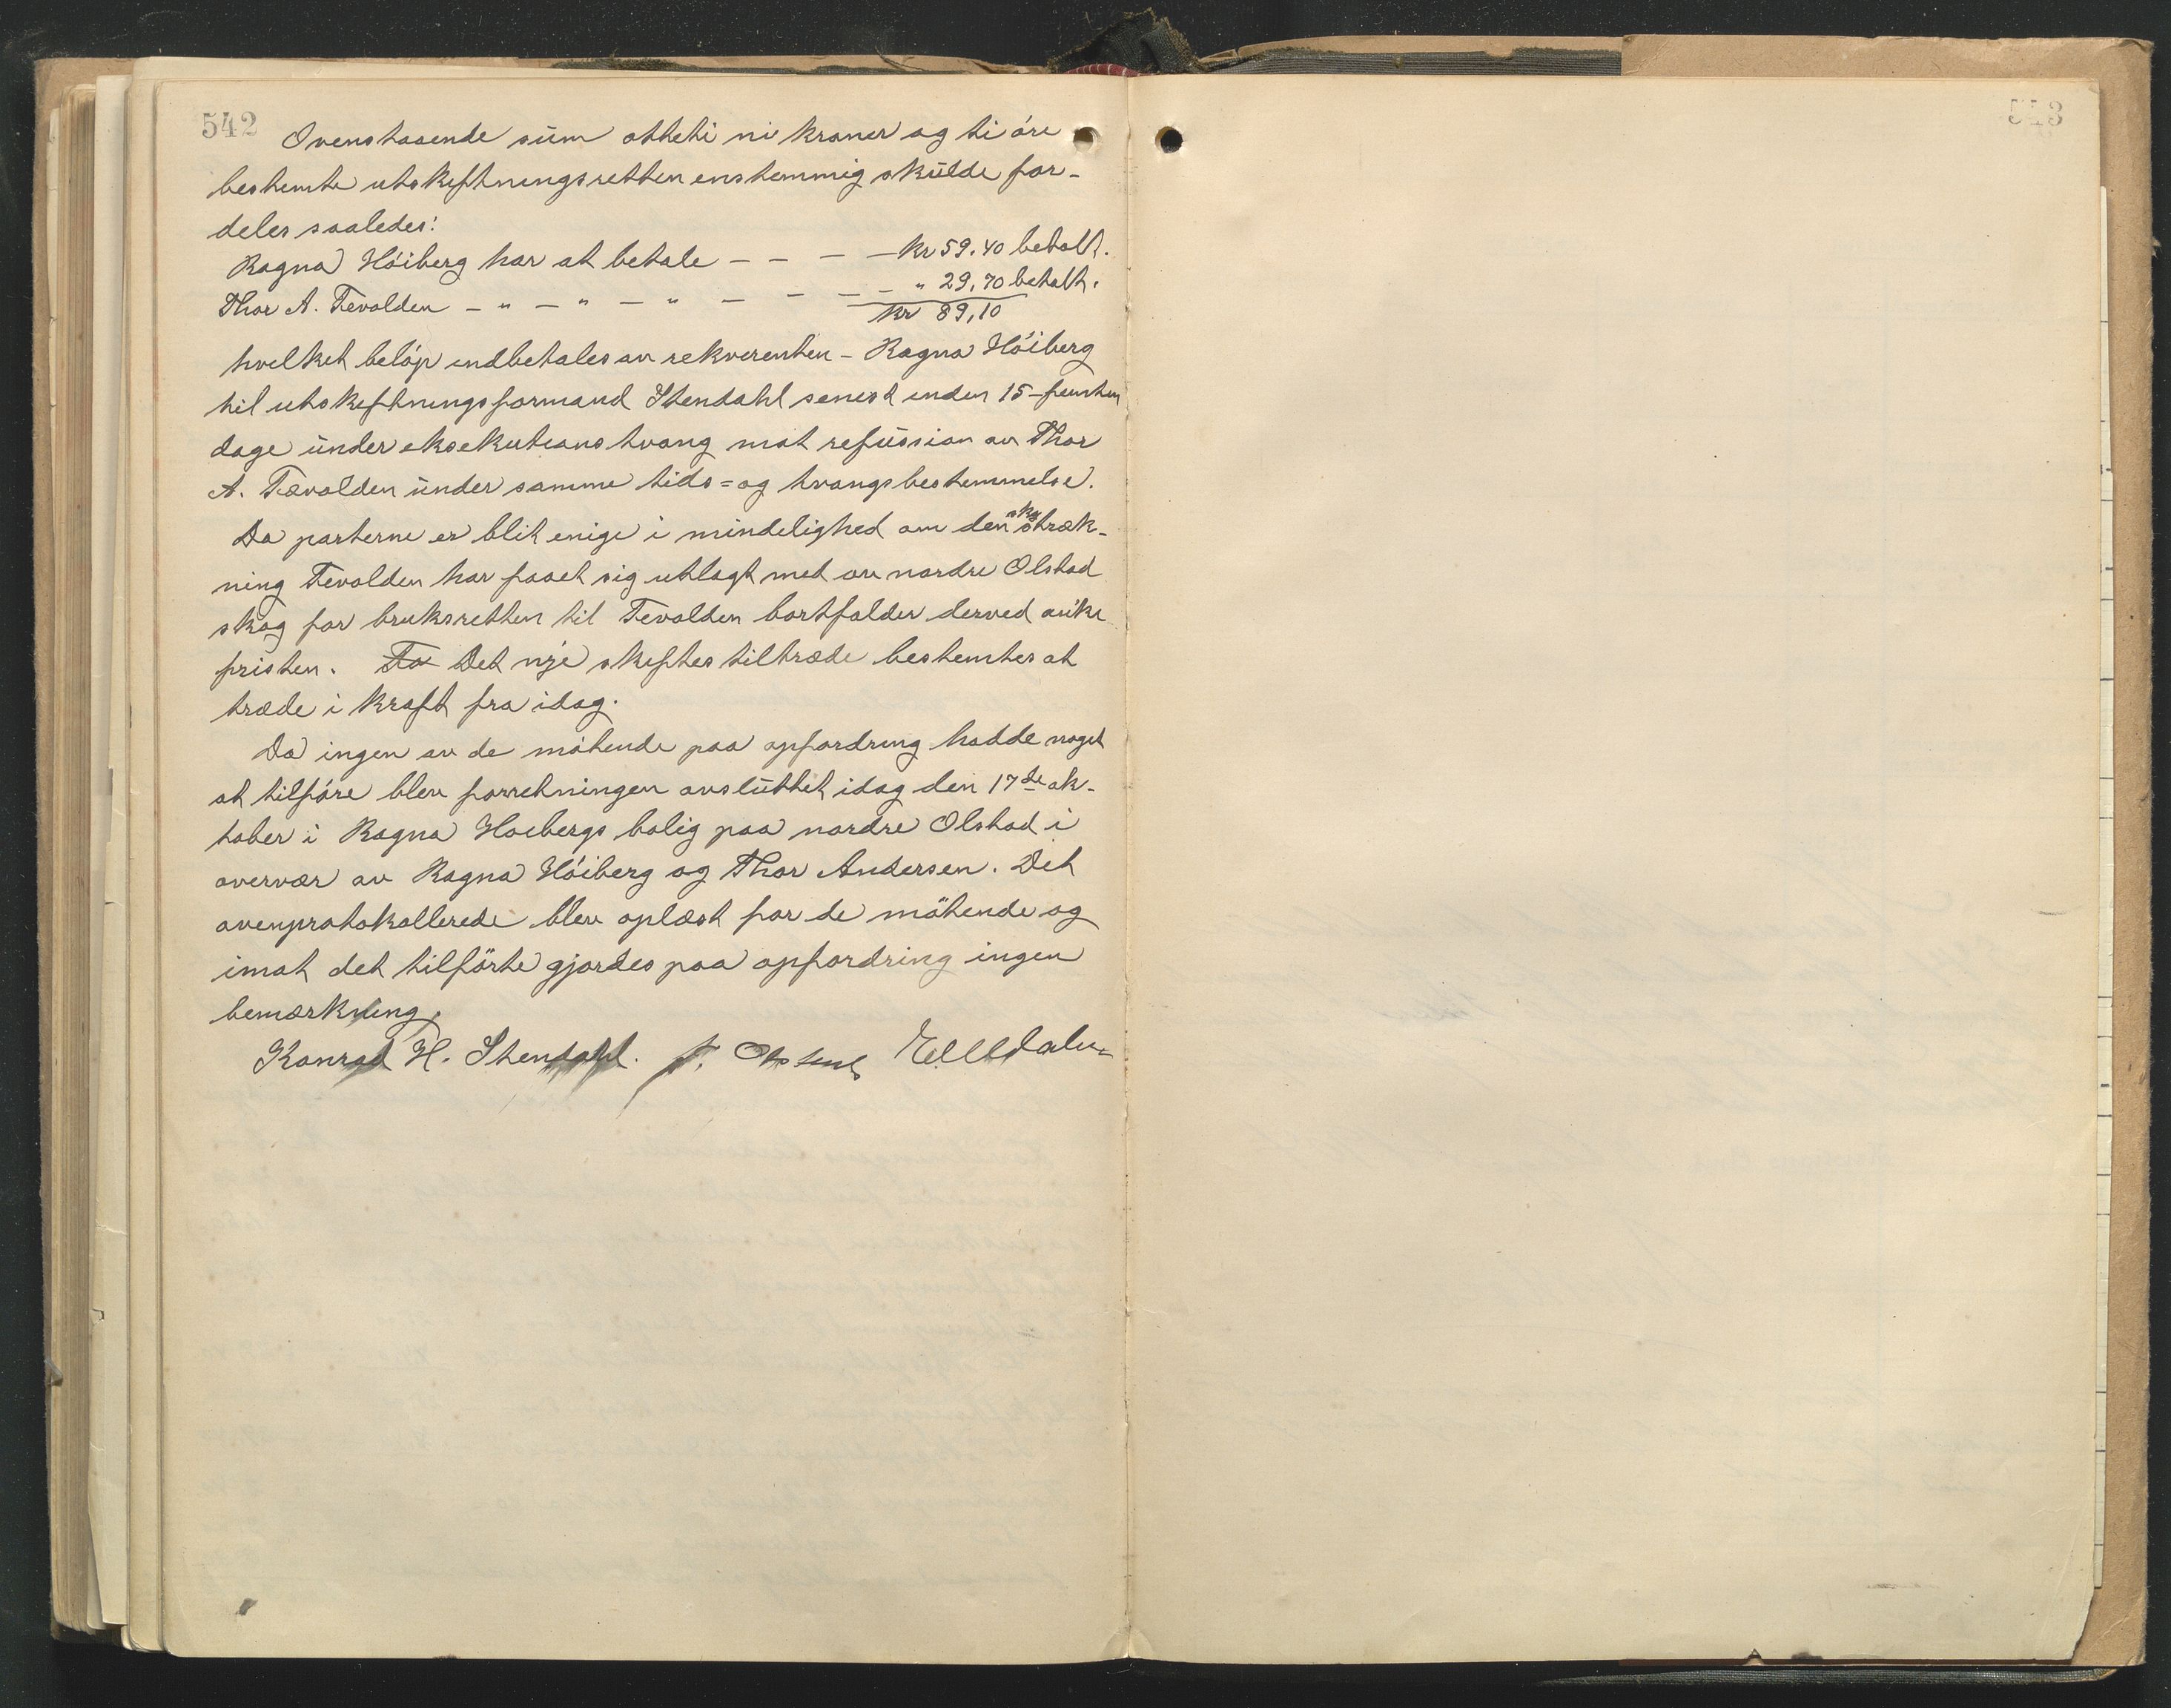 542
Ovenstaaende sum otteti ni kroner og ti øre
bestemte utskiftningsretten enstemmig skulde for-
deles saaledes:
Ragna Høiberg har at betale — — — — Kr 59.40 betalt.
Thor A. Tevolden — " — " — " — — — — " 29,70 betalt.
Kr 89,10
hvilket beløp indbetales av rekvirenten – Ragna Høiberg
til utskiftningsformand Stendahl senest inden 15 – femten
dage under eksekutionstvang mot refussion av Thor
A. Tævolden under samme tids= og tvangsbestemmelse.
Da parterne er blit enige i mindelighed om den skogstræk-
ning Tevolden har faaet sig utlagt med av nordre Olstad
skog for bruksretten til Tevolden bortfalder derved anke
fristen. Det nye skiftes tiltræde bestemtes at
træde i kraft fra idag.
Da ingen av de møtende paa opfordring hadde noget
at tilføre blev forretningen avsluttet idag den 17de ok-
tober i Ragna Hoebergs bolig paa nordre Olstad i
overvær av Ragna Høiberg og Thor Andersen. Det
ovenprotokollerede blev oplæst for de møtende og
imot det tilførte gjordes paa opfordring ingen
bemærkning.
Konrad H. Stendahl.
543